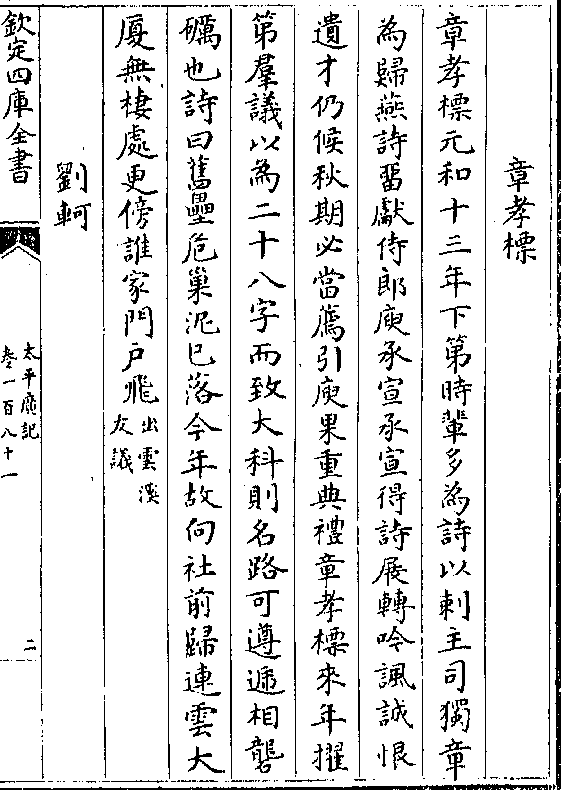 章孝標
章孝標元和十三年下第時輩多為詩以刺主司獨章
為歸燕詩留獻侍郎庾承宣承宣得詩展轉吟諷誠恨
遺才仍候秋期必當薦引庾果重典禮章孝標來年擢
第羣議以為二十八字而致大科則名路可遵遞相礱
礪也詩曰舊壘危巢泥已落今年故向社前歸連雲大
厦無棲處更傍誰家門戶飛出雲溪
友議
劉軻
欽定四庫全書
太平廣記
卷一百八十一
二